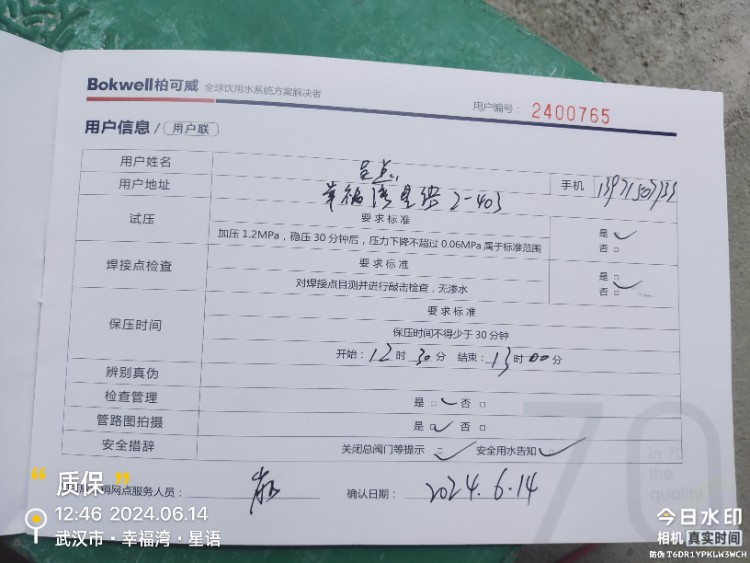 Bokwell柏可威 全球饮用水系统方案解决者
用户编号: 2400765
用户信息 / 用户联
用户姓名
手机
用户地址 幸福湾星语 2-403
试压 要求标准
加压 1.2MPa，稳压 30 分钟后，压力下降不超过 0.06MPa 属于标准范围
是 □ ✓
否 □
焊接点检查 要求标准
对焊接点目测并进行敲击检查，无渗水
是 □ ✓
否 □
保压时间 要求标准
保压时间不得少于 30 分钟
开始: 12 时 30 分 结束: 13 时 00 分
辨别真伪
检查管理 是 □ ✓ 否 □
管路图拍摄 是 □ ✓ 否 □
安全措辞 关闭总阀门等提示 □ ✓ 安全用水告知 □ ✓
70
In 70
the
quality
销网点服务人员:
确认日期: 2024.6.14
“ 质保 ”
12:46 2024.06.14
武汉市·幸福湾·星语
今日水印
相机 真实时间
防伪 T6DR1YPKLW3WCH